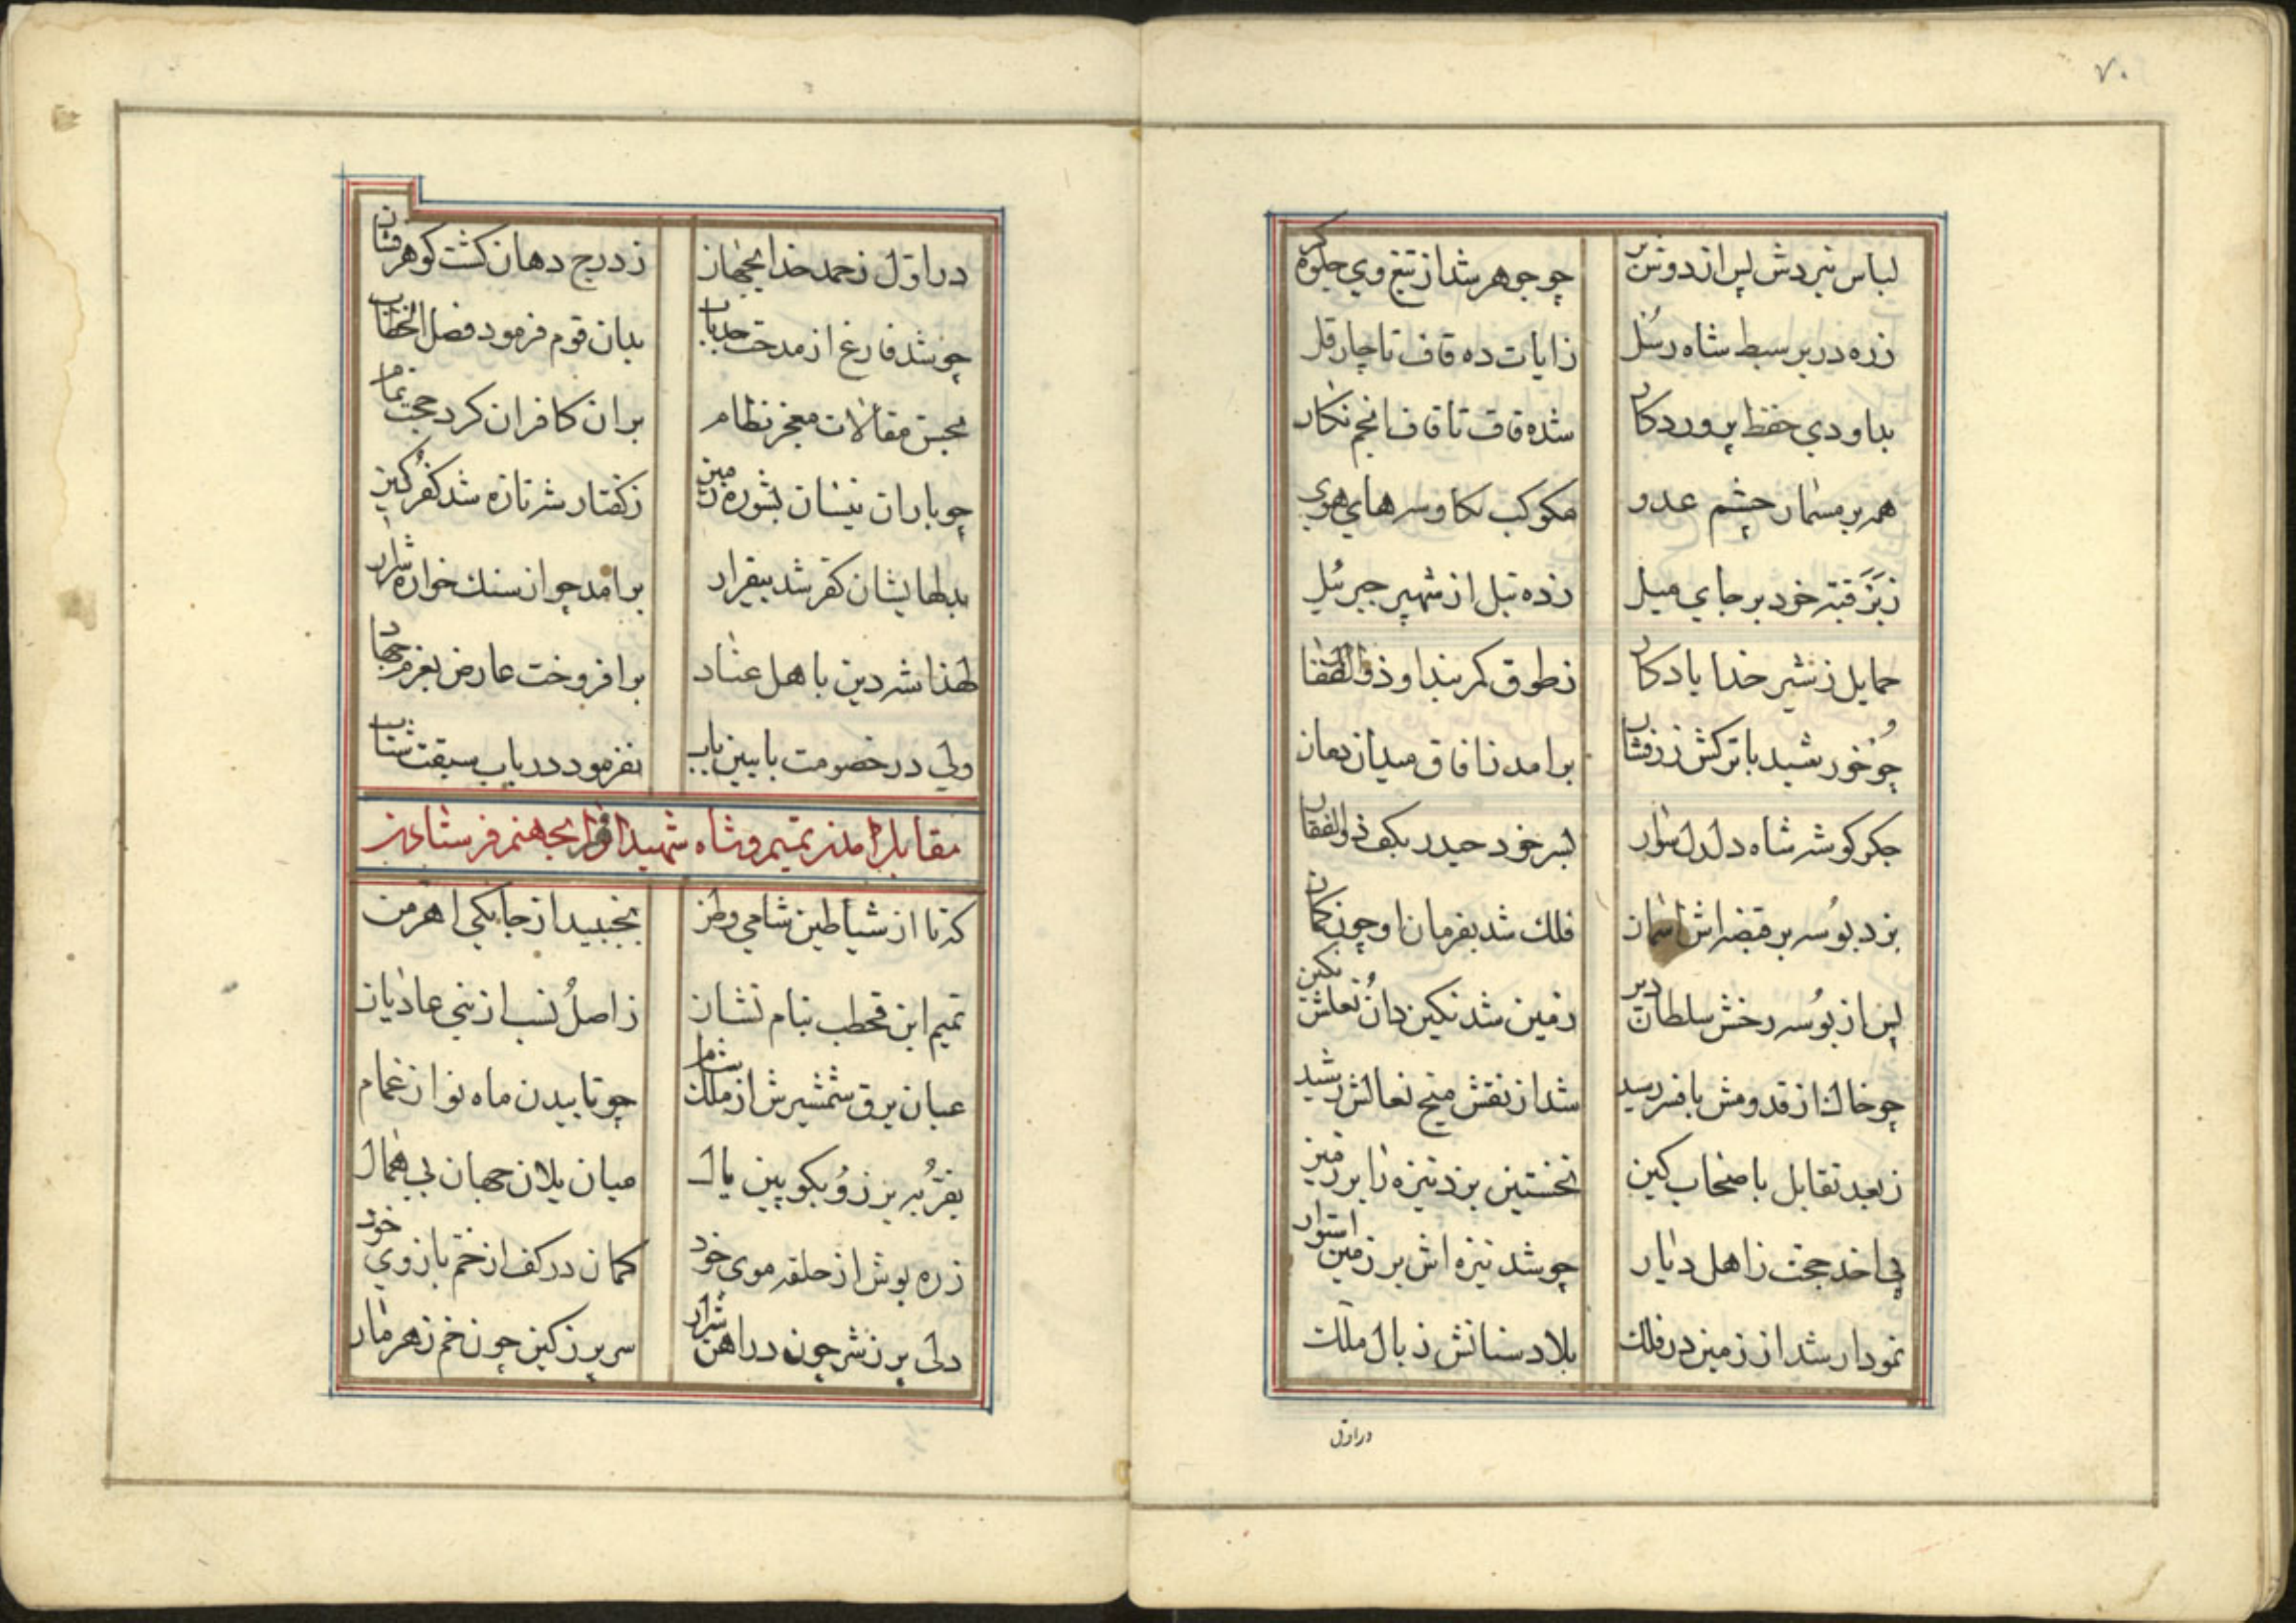 ۷۰
لباس نبردش پس از دوش بر چو جوهر شد از تیغ وی جلوه کر
زره در بر سبط شاه رسل ز ایات ده قاف تا چار قل
بداودی حفظ پروردکار شده قاف تا قاف انجم نکار
همه بر مسمار چشم عدو مکوکب بکاوسهای هوی
قبه خود بر جای میل زده تبل از شهپر جبرئیل
حمایل ز شیر خدا یادکار ز طوق کمربند او ذوالفقار
چو خورشید با ترکش زرفشان برامد ز افاق میدان دمان
جکر کوشه شاه دلدل سوار بسر خود حیدر بکف ذوالفقار
بزد بوسه بر قبضه اش اسمان فلک شد بفرمان او چون کمان
پس از بوسه رخش سلطان دین زمین شد نکین دان نعلش نکین
چو خاک از قدومش بافسر رسید شد از نقش میخ نعالش رشید
ز بعد تقابل باصحاب کین نخستین بزد نیزه را بر زمین
پی اخذ حجت ز اهل دیار چو شد نیزه اش بر زمین استوار
نمودار شد از زمین در فلک بلاد سنانش ز بال ملک
در اول
در اول ز حمد خدای جهان ز درج دهان کشت کوهر فشان
چو شد فارغ از مدحت جد و باب بدان قوم فرمود فصل الخطاب
بحسن مقالات معجز نظام بر ان کافران کرد حجت تمام
چو باران نیسان بشوره زمین ز کفتار شه تازه شد کفر کین
بدلهایشان کفر شد بیقرار برامد چو از سنک خواره شرار
لهذا شه دین با هل عناد برافروخت عارض بعزم جهاد
ولی در خصومت بایین باب نفرمود در باب سبقت شتاب
مقابله امدن تمیم و شاه شهید او را بجهنم فرستادن
که تا از شیاطین شامی وطن بجنبید از جا یکی اهرمن
تمیم ابن قحطب بنام نشان ز اصل نسب از بنی عادیان
عیان برق شمشیرش از ملک شام چو تابیدن ماه نو از غمام
بفر به برز و بکوپین یال میان یلان جهان بی همال
زره پوش از حلقه موی خود کمان در کف از خم بازوی خود
دلی پر ز شر چون در اهن شرار سر پر ز کین چون خم زهر مار